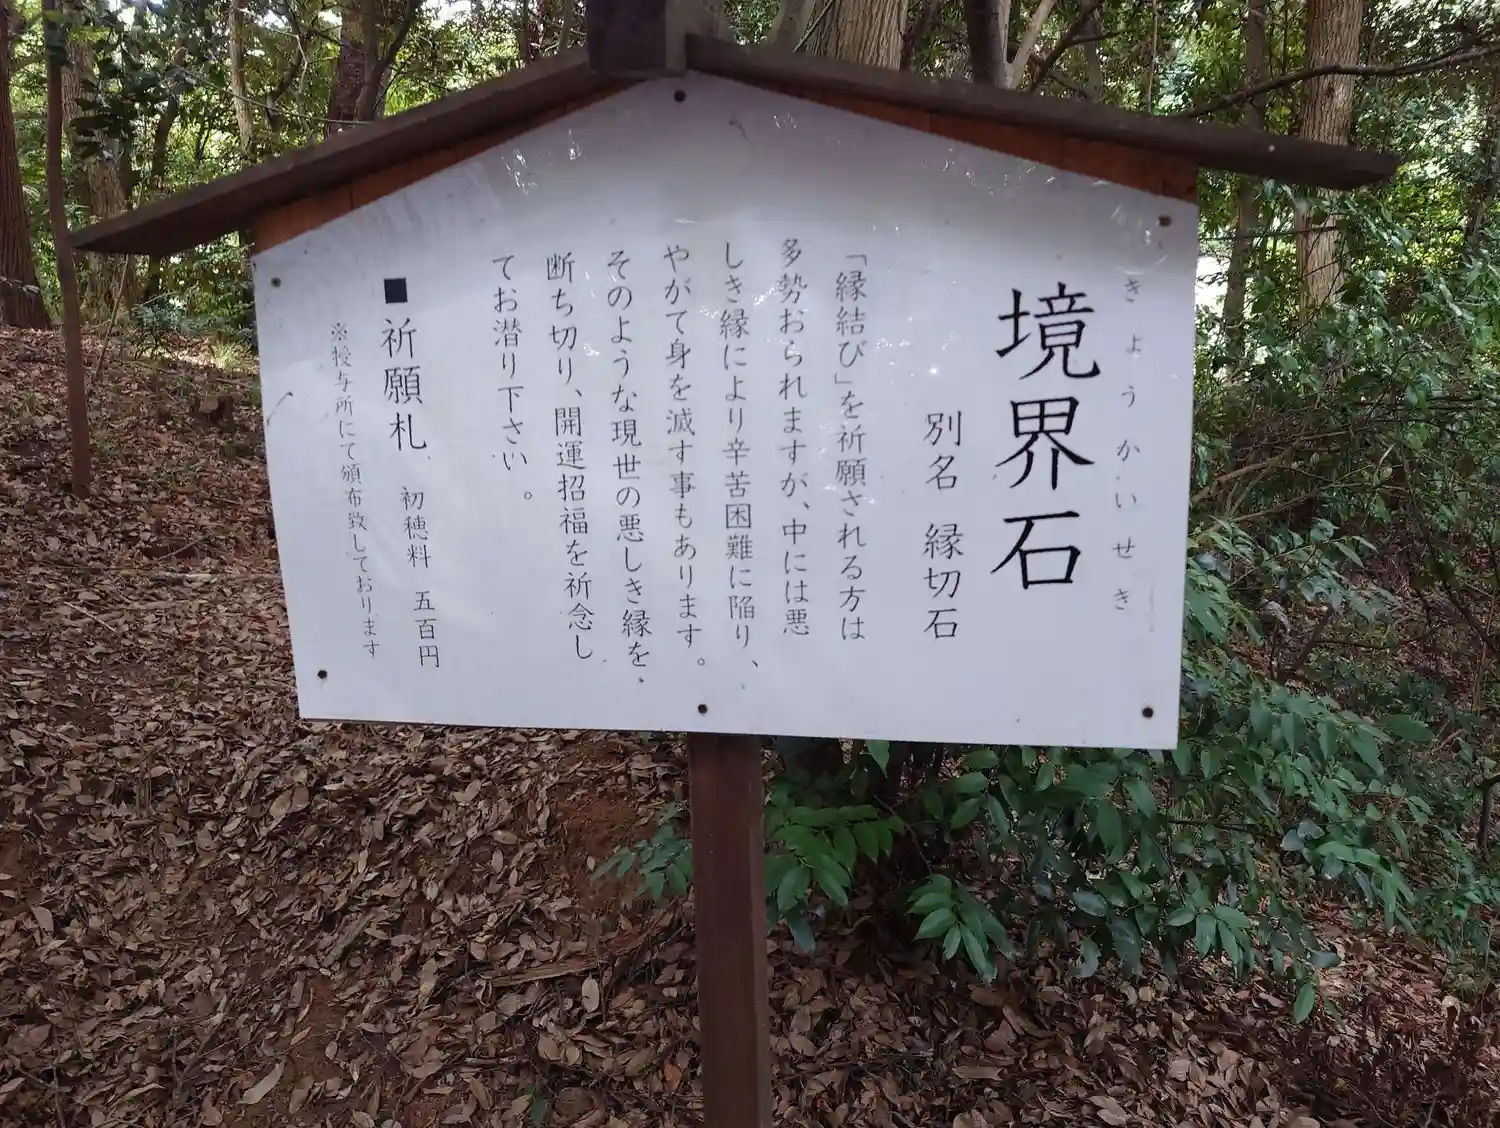 きょうかいせき
境界石
別名　縁切石
「縁結び」を祈願される方は
多勢おられますが、中には悪
しき縁により辛苦困難に陥り、
やがて身を滅す事もあります。
そのような現世の悪しき縁を
断ち切り、開運招福を祈念し
てお潜り下さい。
■祈願札　初穂料　五百円
※授与所にて頒布致しております